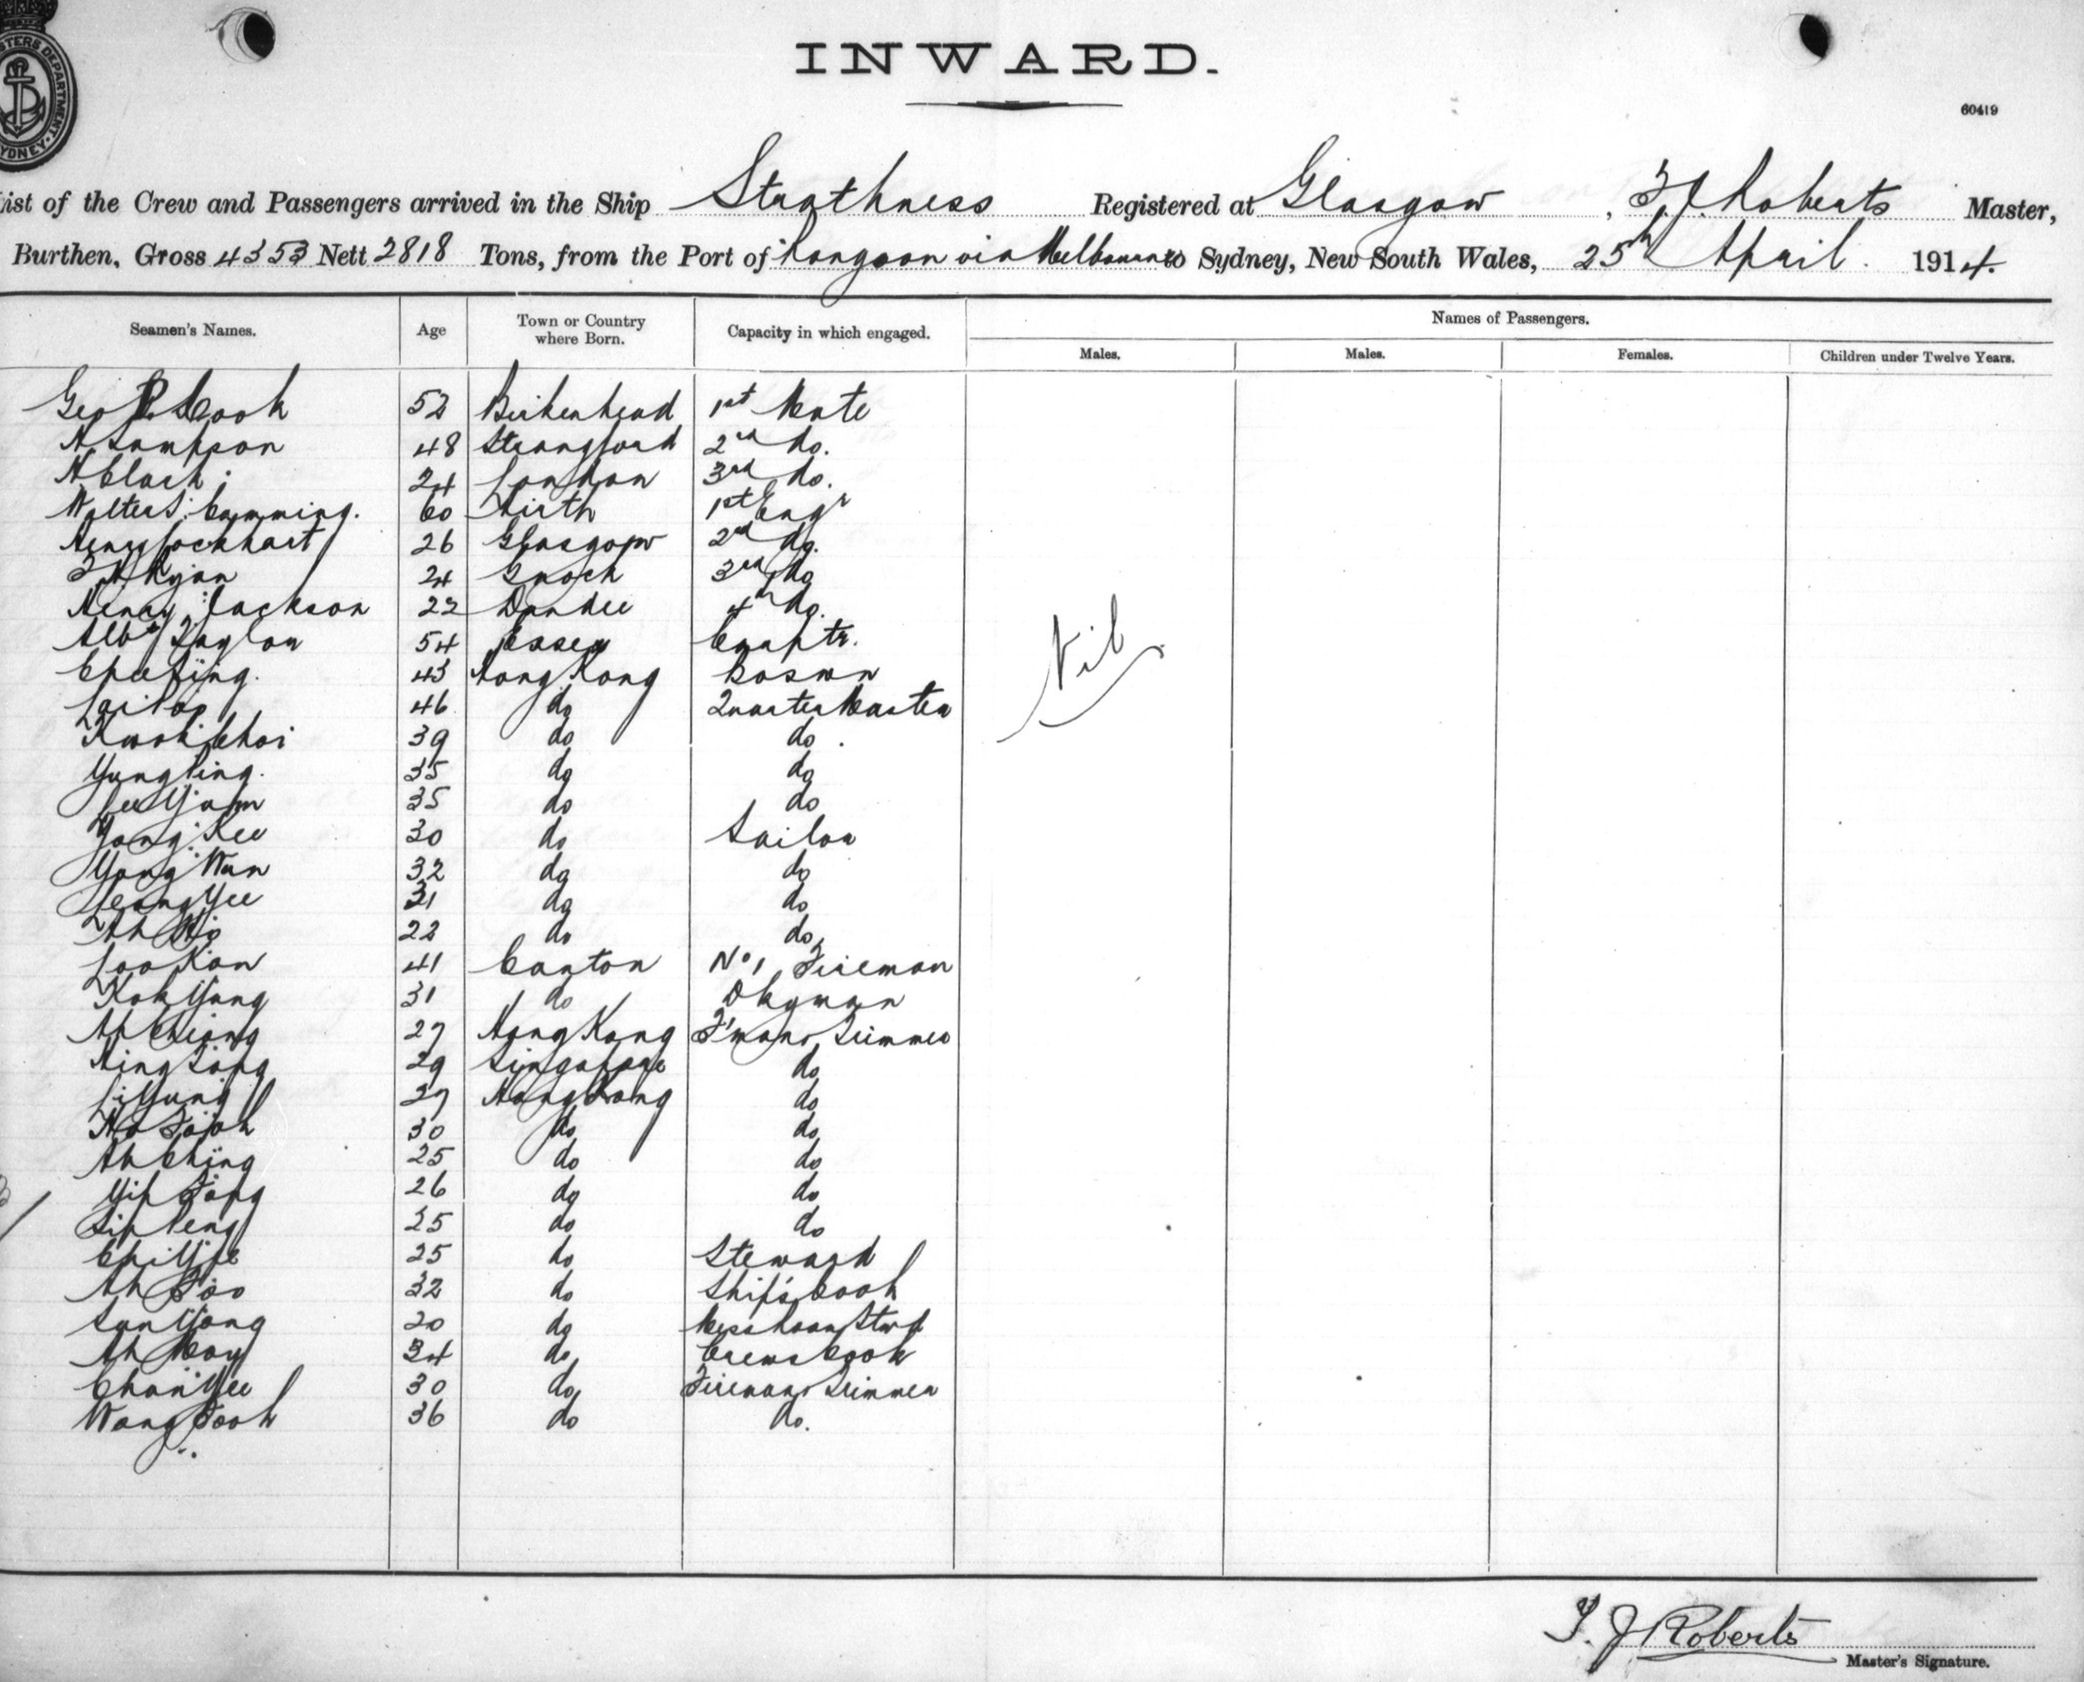 INWARD.
60419
List of the Crew and Passengers arrived in the Ship Strathness Registered at Glasgow, T. J. Roberts Master,
Burthen, Gross 4353 Nett 2818 Tons, from the Port of Rangoon via Melbourne to Sydney, New South Wales, 25th April 1914.
Seamen's Names. Age Town or Country where Born. Capacity in which engaged. Names of Passengers.
Males. Males. Females. Children under Twelve Years.
Geo Cook 52 Birkenhead 1st Mate
A Sampson 48 Strangford 2nd do.
A Clark 24 London 3rd do.
Walter S. Cumming. 60 Airth 1st Engr
Henry Lockhart 26 Glasgow 2nd do.
Ryan 24 3rd do
Henry Jackson 22 Dundee 4th do.
Albt Taylor 54 Essex Carptr.
43 Hong Kong Boswn
46 do Quarter Master
Kwok Choi 39 do do.
Yung Ping. 35 do do
Lee Yam 35 do do
Yong Kee 30 do Sailor
Yong Wan 32 do do
Leong Yee 31 do do
Ah 22 do do
Loo Kon 41 Canton No 1 Fireman
Kok Yung 31 do Dkyman
Ah Chiong 27 Hong Kong F'man & Trimmer
29 Singapore do
Li Yung 27 Hong Kong do
30 do do
Ah Ching 25 do do
Yip 26 do do
25 do do
25 do Steward
Ah 32 do Ship's Cook
Sun Yong 20 do Messroom Stwd
Ah 34 do Crews Cook
Chan Yee 30 do Fireman & Trimmer
Wong 36 do do.
Nil
T. J Roberts
Master's Signature.